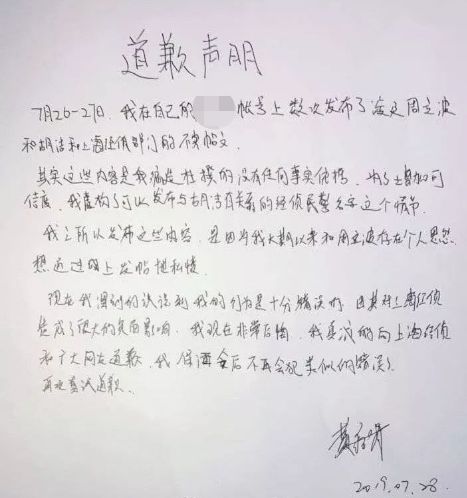 道歉声明
7月26-27日,我在自己的 帐号上数次发布了涉及周立波
和胡洁和上海经侦部门的不实帖文
其实这些内容是我编造杜撰的没有任何事实依据,为了增加可
信度,我虚构了可以发布与胡洁有关系的经侦民警名字这个情节.
我之所以发布这些内容,是因为我长期以来和周立波存在个人恩怨
想通过网上发帖泄私愤.
现在我深刻的认识到我的行为是十分错误的,因其对上海经侦
造成了很大的负面影响,我现在非常后悔,我真诚的向上海经侦
和广大网友道歉,我保证今后不再会犯类似的错误!
再次真诚道歉.
2019.07.28